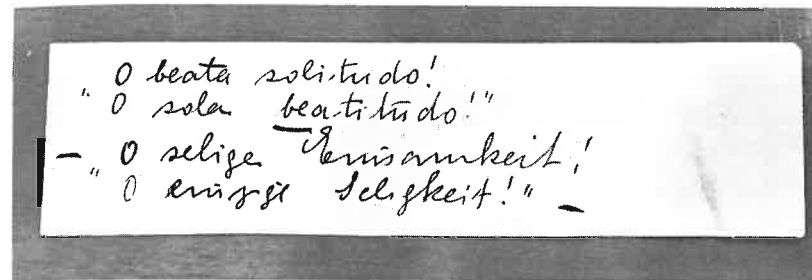 O beata solitudo!
" O sola beatitudo!"
– O selige Einsamkeit!
" O einzige Seligkeit!" –